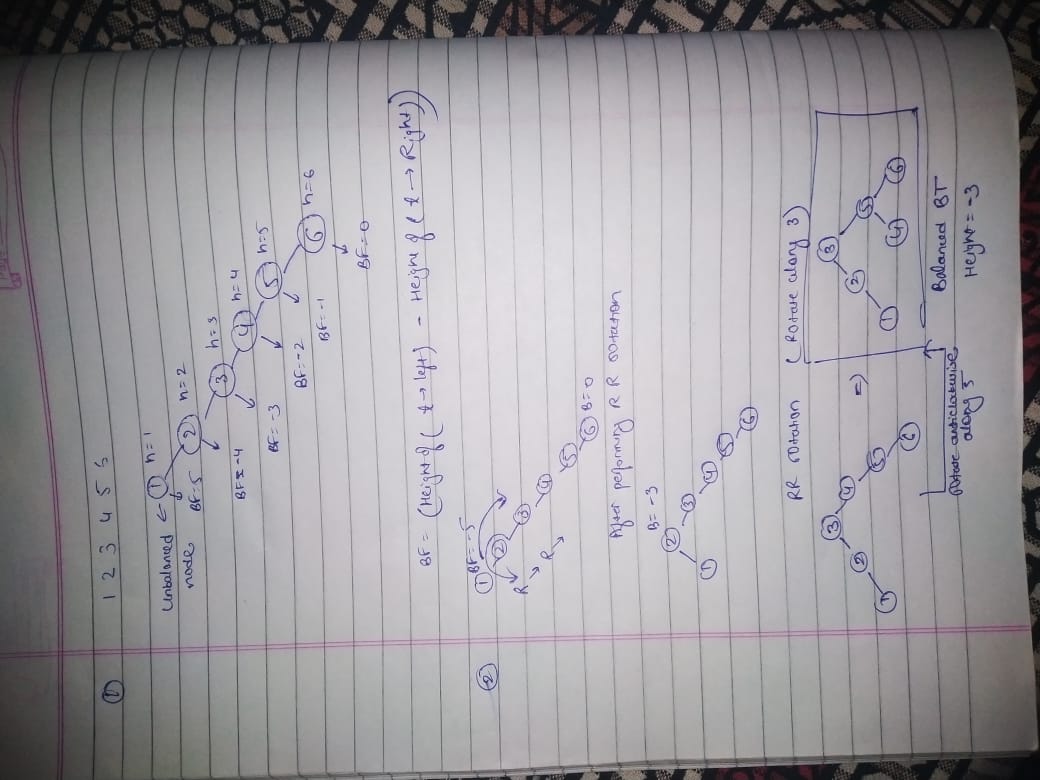 ① 1 2 3 4 5 6
Unbalanced ← ① h=1
node
BF-5 ② h=2
BF=-4 ③ h=3
BF=-3 ④ h=4
BF=-2 ⑤ h=5
BF=-1 ⑥ h=6
BF=0
BF = (Height of (t → left) - Height of (t → Right))
② BF=-5
①
② 
R → ③
R → ④
⑤
⑥ B=0
After performing R R rotation
B=-3
②
① ③
④
⑤
⑥
RR rotation (Rotate along 3)
③ ⇒ ③
② ④ ② ⑤
① ⑤ ① ④ ⑥
⑥
Rotate anticlockwise
along 5
Balanced BT
Height = -3